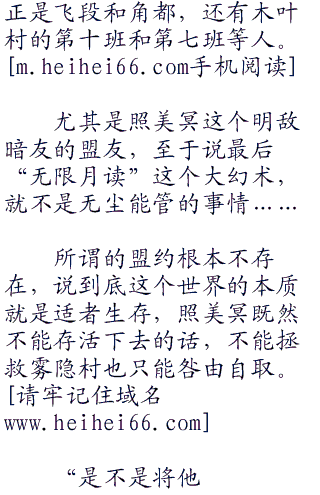 正是飞段和角都，还有木叶
村的第十班和第七班等人。
[m.heihei66.com手机阅读]
尤其是照美冥这个明敌
暗友的盟友，至于说最后
“无限月读”这个大幻术，
就不是无尘能管的事情……
所谓的盟约根本不存
在，说到底这个世界的本质
就是适者生存，照美冥既然
不能存活下去的话，不能拯
救雾隐村也只能咎由自取。
[请牢记住域名
www.heihei66.com]
“是不是将他